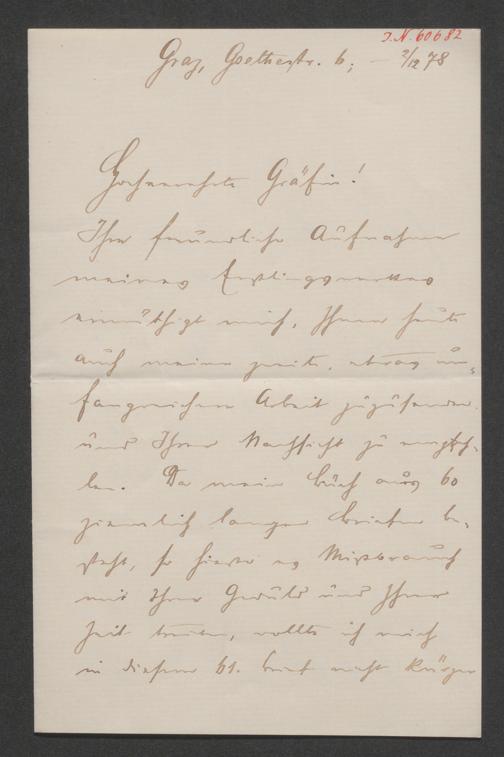 J.N. 60682
Graz, Goethestr. 6; – 2/12 78
Hochverehrte Gräfin!
Ihre freundliche Aufnahme
meines Erstlingswerkes
ermüthigt mich, Ihnen heute
auch meine zweite, etwas um-
fangreichere Arbeit zuzusenden
und Ihrer Nachsicht zu empfeh-
len. Da mein Buch aus 60
ziemlich langen Briefen be-
steht, so hieße es Missbrauch
mit Ihrer Geduld und Ihrer
Zeit treiben, wollte ich mich
in diesem 61. Brief nicht kürzer